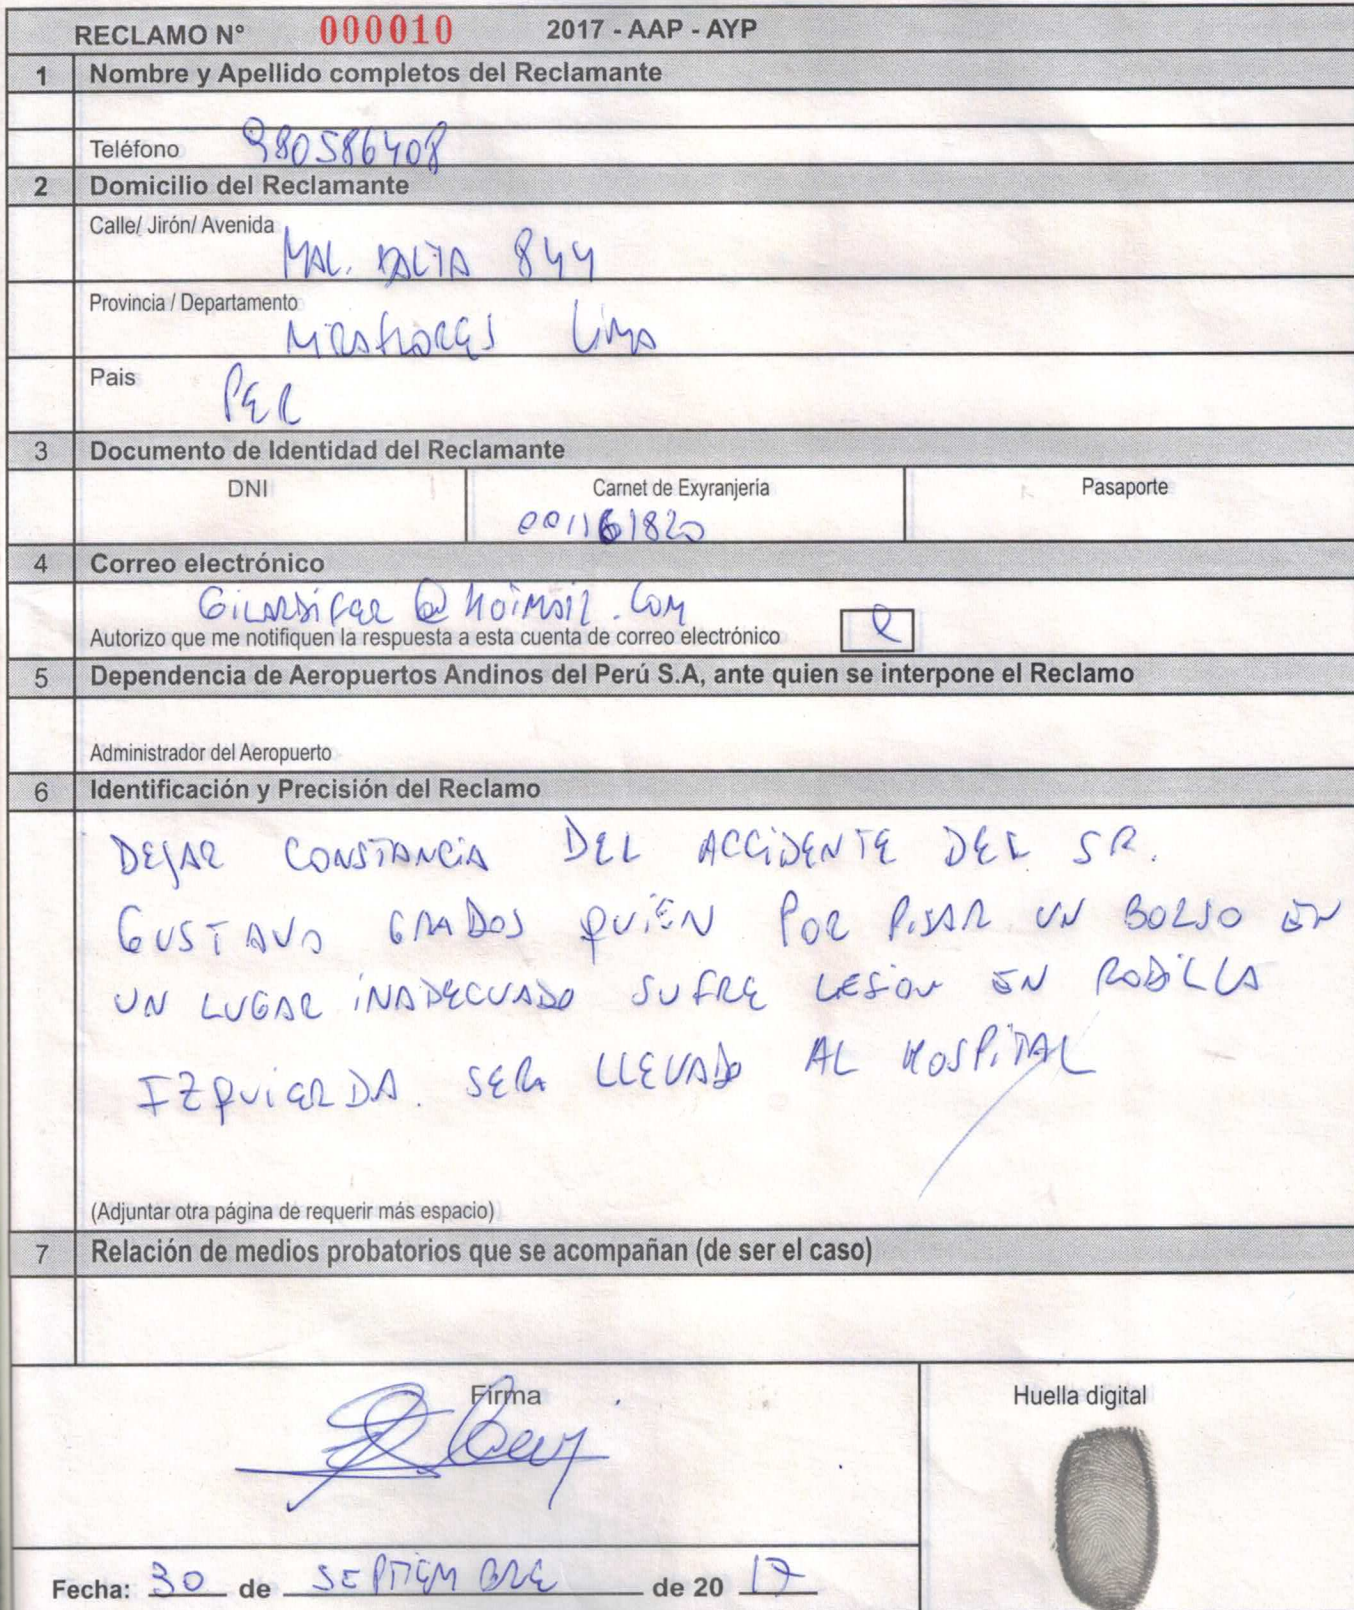 RECLAMO N° 000010 2017 - AAP - AYP
1 Nombre y Apellido completos del Reclamante
Teléfono 980586408
2 Domicilio del Reclamante
Calle/ Jirón/ Avenida
MAL. BALTA 844
Provincia / Departamento
MIRAFLORES LIMA
Pais
PER
3 Documento de Identidad del Reclamante
DNI Carnet de Exyranjeria Pasaporte
001161820
4 Correo electrónico
GILARDIFER@HOTMAIL.COM
Autorizo que me notifiquen la respuesta a esta cuenta de correo electrónico
5 Dependencia de Aeropuertos Andinos del Perú S.A, ante quien se interpone el Reclamo
Administrador del Aeropuerto
6 Identificación y Precisión del Reclamo
DEJAR CONSTANCIA DEL ACCIDENTE DEL SR.
GUSTAVO GRADOS QUIEN POR PISAR UN BOLSO EN
UN LUGAR INADECUADO SUFRE LESION EN RODILLA
IZQUIERDA. SERA LLEVADO AL HOSPITAL
(Adjuntar otra página de requerir más espacio)
7 Relación de medios probatorios que se acompañan (de ser el caso)
Firma Huella digital
Fecha: 30 de SEPTIEMBRE de 20 17